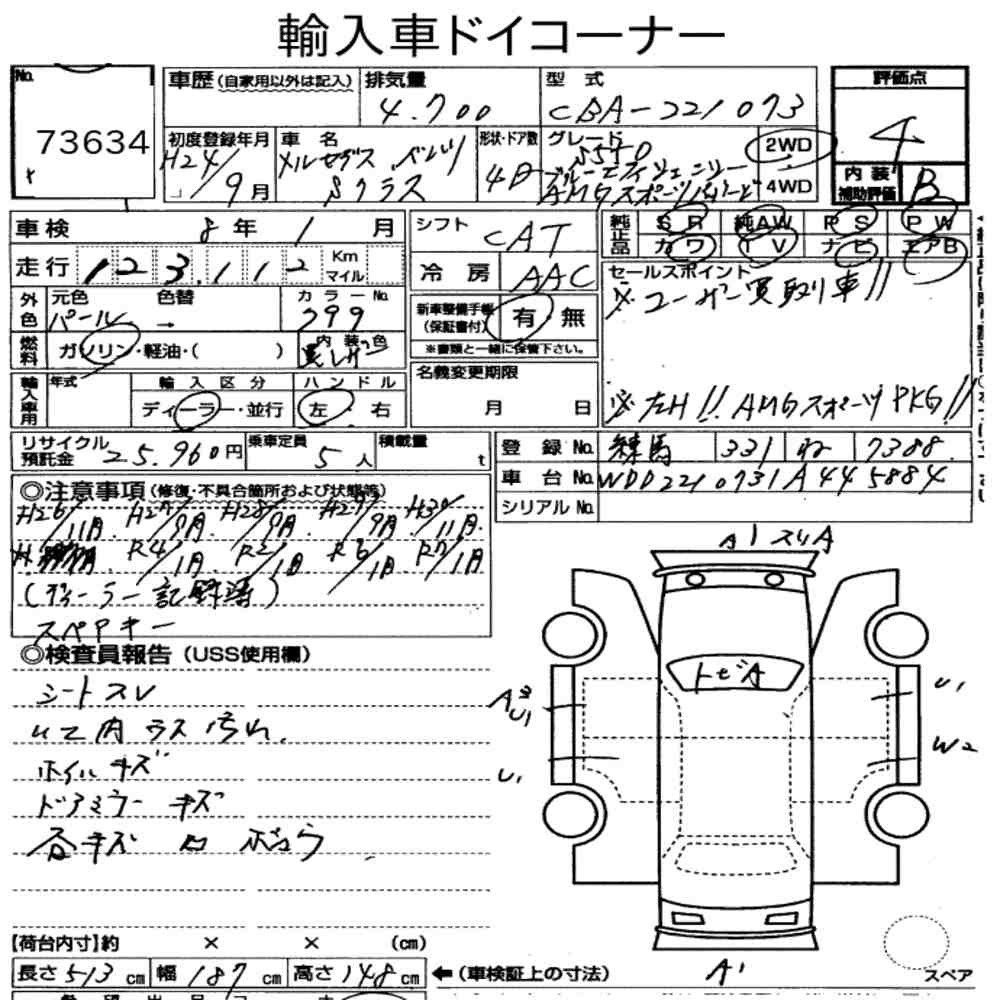 輸入車ドイコーナー
No. 73634
車歴 (自家用以外は記入) 排気量 4.700 型式 CBA-221073
評価点 4
内装補助評価 B
初度登録年月 H24/9月 車名 メルセデスベンツ Sクラス 形状・ドア数 4D グレード S550 ブルーエフィシェンシー AMGスポーツ 2WD 4WD
車検 8年 1月
走行 123.112 Km マイル
シフト CAT
冷房 AAC
純正品 SR 純AW PS PW
カワ TV ナビ エアB
外色 元色 パール 色替 → カラーNo. 799
燃料 ガソリン・軽油・( ) 内装色 黒レザー
新車整備手帳 (保証書付) 有・無
※書類と一緒に保管下さい。
セールスポイント
※ユーザー買取車!!
※左H!! AMGスポーツPKG!!
輸入車用 年式 輸入区分 ディーラー・並行 ハンドル 左・右
名義変更期限 月 日
リサイクル預託金 25.960円 乗車定員 5人 積載量 t
登録No. 練馬 331 ね 7388
車台No. WDD2210731A445884
シリアルNo.
◎注意事項 (修復・不具合箇所および状態等)
H26/11月. H27/9月. H28/9月. H29/9月. H30/11月.
R4/1月 R5/1月 R6/1月 R7/1月
(ディーラー記録簿)
スペアキー
◎検査員報告 (USS使用欄)
シートスレ
内ラス汚れ.
ホイルキズ
ドアミラーキズ
各キズ凹ボコウ
A1 スリA
トビA
A3
U1
U1
U1
W2
A1
スペア
【荷台内寸】約 × × (cm)
長さ 513cm 幅 187cm 高さ 148cm
← (車検証上の寸法)